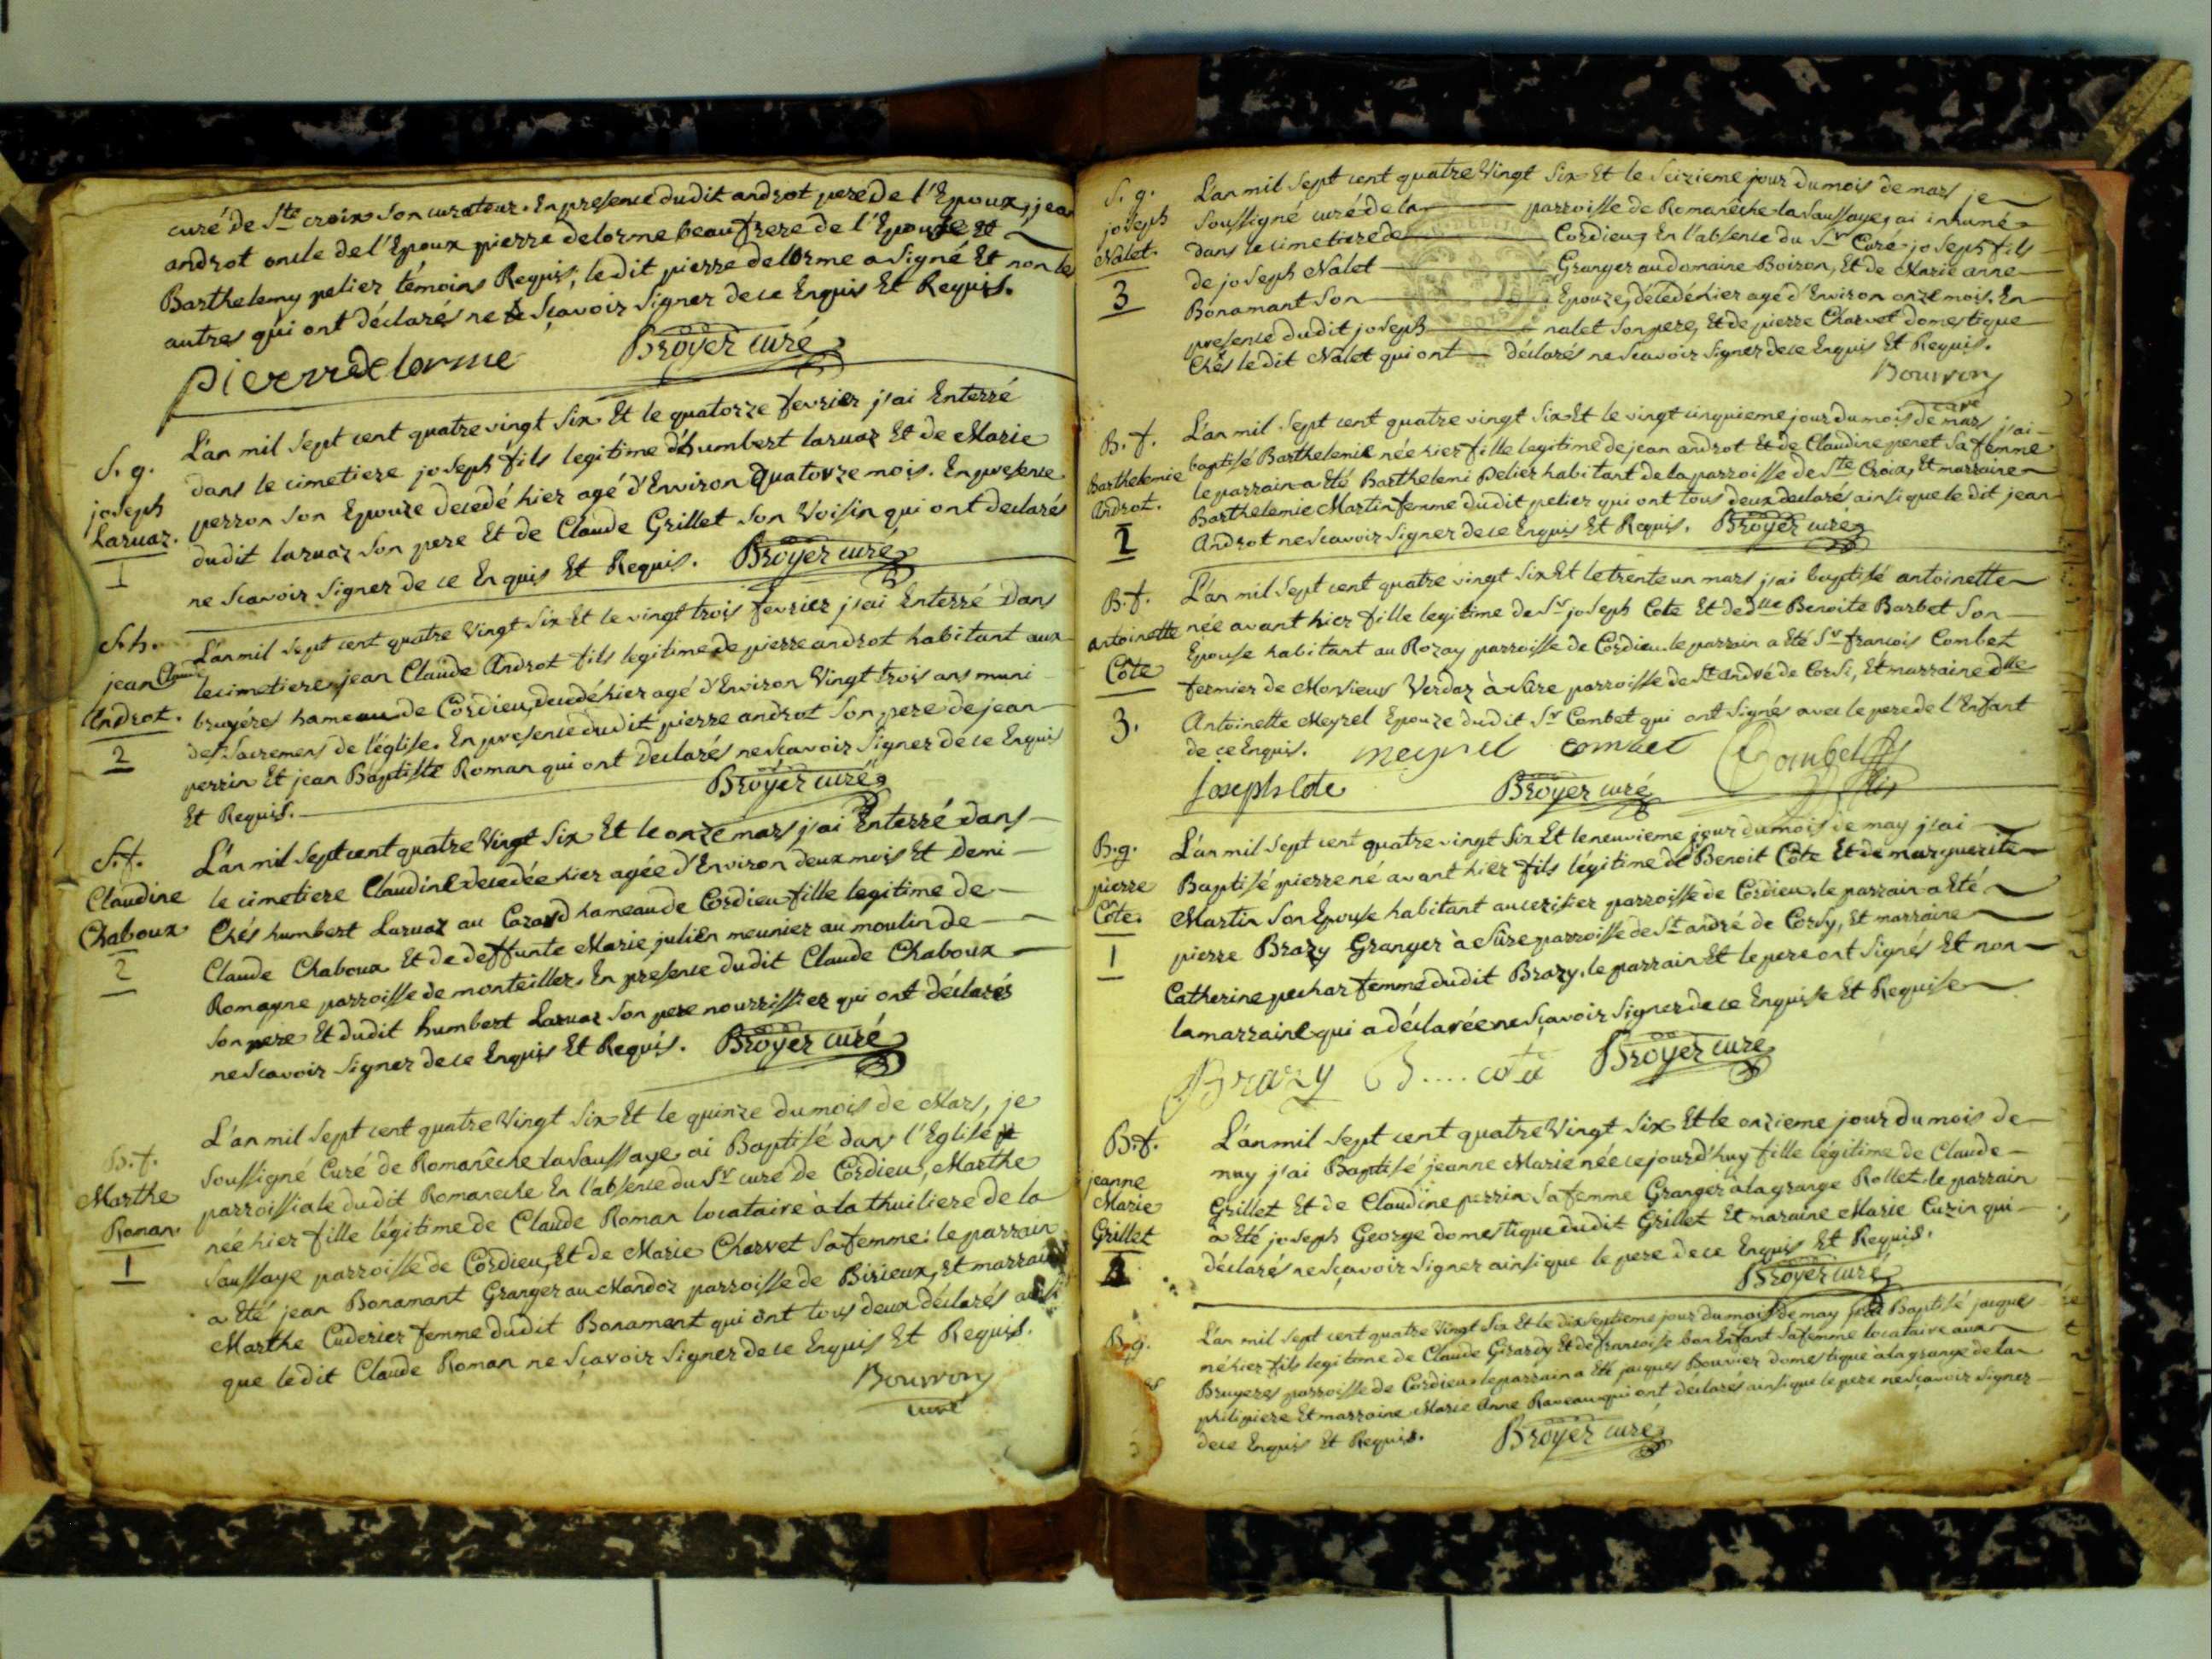 curé de Ste croix son curateur. En presence dudit androt pere de l'Epoux, jean
androt oncle de l'Epoux pierre delorme beaufrere de l'Epouse Et
Barthelemy pelier témoins Requis, le dit pierre delorme a signé Et non les
autres qui ont déclarés ne sçavoir signer de ce Enquis Et Requis.
pierre delorme Broyer curé
S. g.
joseph
Laruaz.
1
L'an mil sept cent quatre vingt six Et le quatorze fevrier j'ai Enterré
dans le cimetiere joseph fils legitime d'humbert laruaz Et de Marie
perron son Epouze decedé hier agé d'Environ quatorze mois. En presence
dudit laruaz son pere Et de Claude Grillet son Voisin qui ont declarés
ne scavoir signer de ce Enquis Et Requis. Broyer curé
S. h.
jean Claude
Androt.
2
L'an mil sept cent quatre Vingt six Et le vingt trois fevrier j'ai Enterré Dans
le cimetiere jean Claude Androt fils legitime de pierre androt habitant aux
bruyéres hameau de Cordieu, decedé hier agé d'Environ Vingt trois ans muni
des sacremens de l'église. En presence dudit pierre androt son pere de jean
perrin Et jean Baptiste Roman qui ont declarés ne scavoir signer de ce Enquis
Et Requis. Broyer curé
S. f.
Claudine
Chaboux
2
L'an mil sept cent quatre Vingt six Et le onze mars j'ai Enterré dans
le cimetiere Claudine decedée hier agée d'Environ deux mois Et Demi
Chés humbert Laruaz au Cazard hameau de Cordieu fille legitime de
Claude Chaboux Et de deffunte Marie julien meunier au moulin de
Romagne parroisse de montellier. En presence dudit Claude Chaboux
son pere Et dudit humbert Laruaz son pere nourrissier qui ont déclarés
ne scavoir signer de ce Enquis Et Requis. Broyer curé
B. f.
Marthe
Roman
1
L'an mil sept cent quatre Vingt six Et le quinze du mois de Mars, je
soussigné Curé de Romanêche la saussaye ai Baptisé dans l'Eglise
parroissiale dudit Romaneche En l'absence du Sr curé de Cordieu, Marthe
née hier fille légitime de Claude Roman locataire à la thuiliere de la
saussaye parroisse de Cordieu, Et de Marie Charvet sa femme: le parrain
a Eté jean Bonamant Granger au Mandoz parroisse de Birieux, Et marraine
Marthe Cuderier femme dudit Bonamant qui ont tous deux déclarés ainsi
que le dit Claude Roman ne sçavoir signer de ce Enquis Et Requis.
Bouvron
curé
S. g.
joseph
Nalet.
3
L'an mil sept cent quatre Vingt six Et le seizieme jour du mois de mars je
soussigné curé de la parroisse de Romanêche la saussaye, ai inhumé
dans le cimetiere de Cordieu, En l'absence du Sr Curé joseph fils
de joseph Nalet Granger au domaine Boiron, Et de Marie anne
Bonamant son Epouze, décédé hier agé d'Environ onze mois. En
presence dudit joseph nalet son pere, Et de pierre Charvet domestique
Chés le dit Nalet qui ont déclarés ne scavoir signer de ce Enquis Et Requis.
Bouvron
curé
B. f.
Barthelemie
Androt.
2
L'an mil sept cent quatre vingt six Et le vingt cinquieme jour du mois de mars j'ai
baptisé Barthelemie née hier fille legitime de jean androt Et de Claudine penet sa femme
le parrain a Eté Barthelemi Pelier habitant de la parroisse de Ste Croix, Et marraine
Barthelemie Martin femme dudit pelier qui ont tous deux declarés ainsi que le dit jean
Androt ne scavoir signer de ce Enquis Et Requis. Broyer curé
B. f.
antoinette
Côte
3.
L'an mil sept cent quatre vingt six Et le trente un mars j'ai baptisé antoinette
née avant hier fille legitime de Sr joseph Cote Et de dlle Benoite Barbet son
Epouse habitant au Rozay parroisse de Cordieu. le parrain a Eté Sr françois Combet
fermier de Monsieur Verdaz à sûre parroisse de St André de Corsi, Et marraine dlle
Antoinette Meyzel Epouze dudit Sr Combet qui ont signés avec le pere de l'Enfant
de ce Enquis. meyzel combet Combet fils
joseph Cote Broyer curé
B. g.
pierre
Côte.
1
L'an mil sept cent quatre vingt six Et le neuvieme jour du mois de may j'ai
Baptisé pierre né avant hier fils légitime de Benoit Côte Et de marguerite
Martin son Epouse habitant au cerisier parroisse de Cordieu. le parrain a Eté
pierre Brazy Granger à sûre parroisse de St andré de Corsy, Et marraine
Catherine pechar femme dudit Brazy. le parrain Et le pere ont signés Et non
la marraine qui a déclarée ne sçavoir signer de ce Enquise Et Requise
Brazy B.... cote Broyer curé
B. f.
jeanne
Marie
Grillet
L'an mil sept cent quatre Vingt six Et le onzieme jour du mois de
may j'ai Baptisé jeanne Marie née ce jourd'huy fille légitime de Claude
Grillet Et de Claudine perrin sa femme Granger à la grange Rollet. le parrain
a Eté joseph George domestique dudit Grillet Et maraine Marie Cuzin qui
déclarés ne sçavoir signer ainsi que le pere de ce Enquis Et Requis.
Broyer curé
B. g.
L'an mil sept cent quatre Vingt six Et le dix septieme jour du mois de may j'ai Baptisé jacques
né hier fils legitime de Claude Girardy Et de francoise bon Enfant sa femme locataire aux
Bruyeres parroisse de Cordieu. le parrain a Eté jacques Bouvier domestique à la grange de la
philipiere Et marraine Marie Anne Raveau qui ont déclarés ainsi que le pere ne sçavoir signer
de ce Enquis Et Requis. Broyer curé